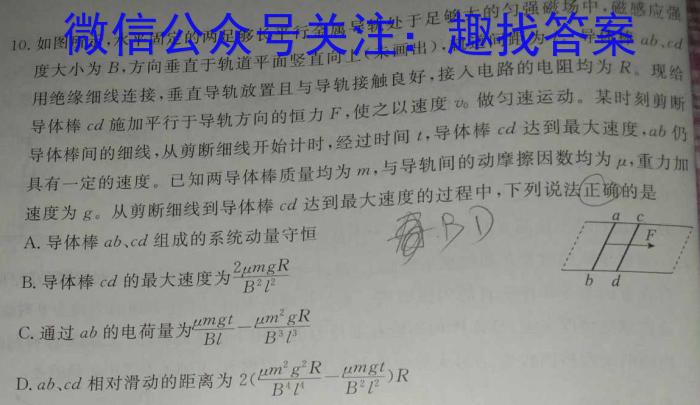 微信公众号关注：趣找答案
10. 如图所示,水平固定的两足够长平行金属导轨处于足够大的匀强磁场中,磁感应强
度大小为B,方向垂直于轨道平面竖直向上(未画出),
导体棒ab、cd
用绝缘细线连接,垂直导轨放置且与导轨接触良好,接入电路的电阻均为R。现给
导体棒cd施加平行于导轨方向的恒力F,使之以速度v₀做匀速运动。某时刻剪断
导体棒间的细线,从剪断细线开始计时,经过时间t,导体棒cd达到最大速度,ab仍
具有一定的速度。已知两导体棒质量均为m,与导轨间的动摩擦因数均为μ,重力加
速度为g。从剪断细线到导体棒cd达到最大速度的过程中,下列说法正确的是
A. 导体棒ab、cd组成的系统动量守恒
BD
a c
F
b d
B. 导体棒cd的最大速度为2μmgR/B²l²
C. 通过ab的电荷量为μmgt/Bl−μm²gR/B³l³
D. ab、cd相对滑动的距离为2(μm²g²R/B⁴l⁴−μmgt/B²l²)R